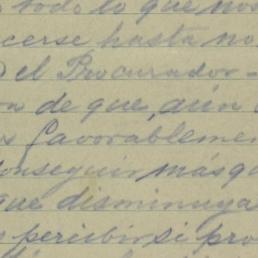 todo lo que nos
cerse hasta no
el Procurador-
de que, aún
favorablemen
conseguir más q
que disminuya
percibir si pro